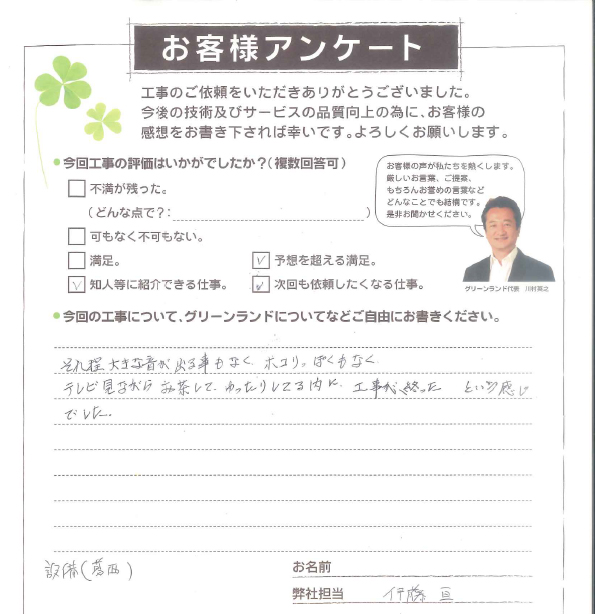 お客様アンケート
工事のご依頼をいただきありがとうございました。
今後の技術及びサービスの品質向上の為に、お客様の
感想をお書き下されば幸いです。よろしくお願いします。
今回工事の評価はいかがでしたか?(複数回答可)
不満が残った。
(どんな点で?: )
可もなく不可もない。
満足。
予想を超える満足。
知人等に紹介できる仕事。
次回も依頼したくなる仕事。
お客様の声が私たちを熱くします。
厳しいお言葉、ご提案、
もちろんお誉めの言葉など
どんなことでも結構です。
是非お聞かせください。
グリーンランド代表 川村英之
今回の工事について、グリーンランドについてなどご自由にお書きください。
それ程大きな音が出る事もなく、ホコリっぽくもなく
テレビ見ながらお茶して、ゆったりしてる内に、工事が終った という感じ
でした。
設備()
お名前
弊社担当 伊藤 亘